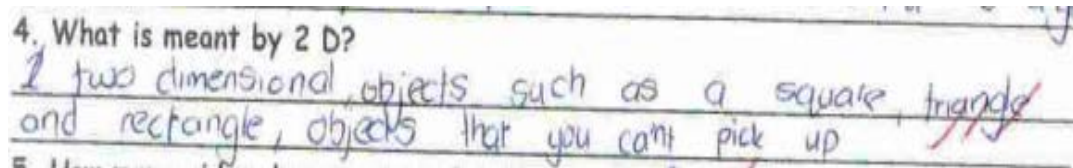 4. What is meant by 2 D?
2 two dimensional, objects such as a square, triangle
and rectangle, objects that you can't pick up